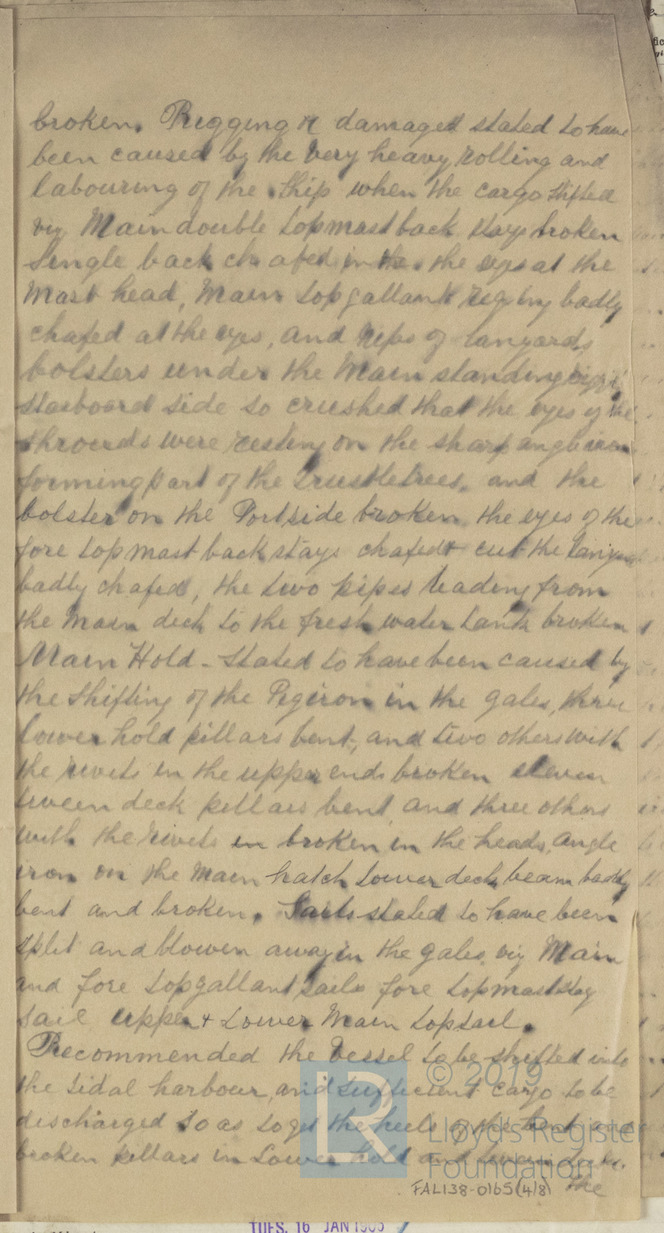 broken. Rigging &c damaged stated to have
been caused by the very heavy rolling and
labouring of the Ship when the cargo shifted
viz Main double topmast back stays broken
Single back chafed in the eyes at the
Mast head, Main topgallant rigging badly
chafed at the eyes, and of lanyards
bolsters under the Main standing
starboard side so crushed that the eyes of the
shrouds were resting on the sharp angle iron
forming part of the trustletrees, and the
bolster on the Port side broken, the eyes of the
fore topmast back stays chafed & cut the
badly chafed, the two pipes leading from
the main deck to the fresh water tank broken
Main Hold - Stated to have been caused by
the Shifting of the Pigiron in the gales, three
lower hold pillars bent, and two others with
the rivets in the upper ends broken eleven
tween deck pillars bent and three others
with the rivets in broken in the heads, angle
iron on the Main hatch Lower deck beam badly
bent and broken. Sails stated to have been
split and blowen away in the gales, viz Main
and fore topgallant sails fore topmast stay
sail upper & Lower Main topsail.
Recommended the Vessel to be shifted into
the tidal harbour, and sufficient cargo to be
discharged so as to get the heels of the bent and
broken pillars in Lower hold and tween decks.
the
© 2019
Lloyd's Register
Foundation
FAL138-0165(4/8)
TUES. 16 JAN 1905